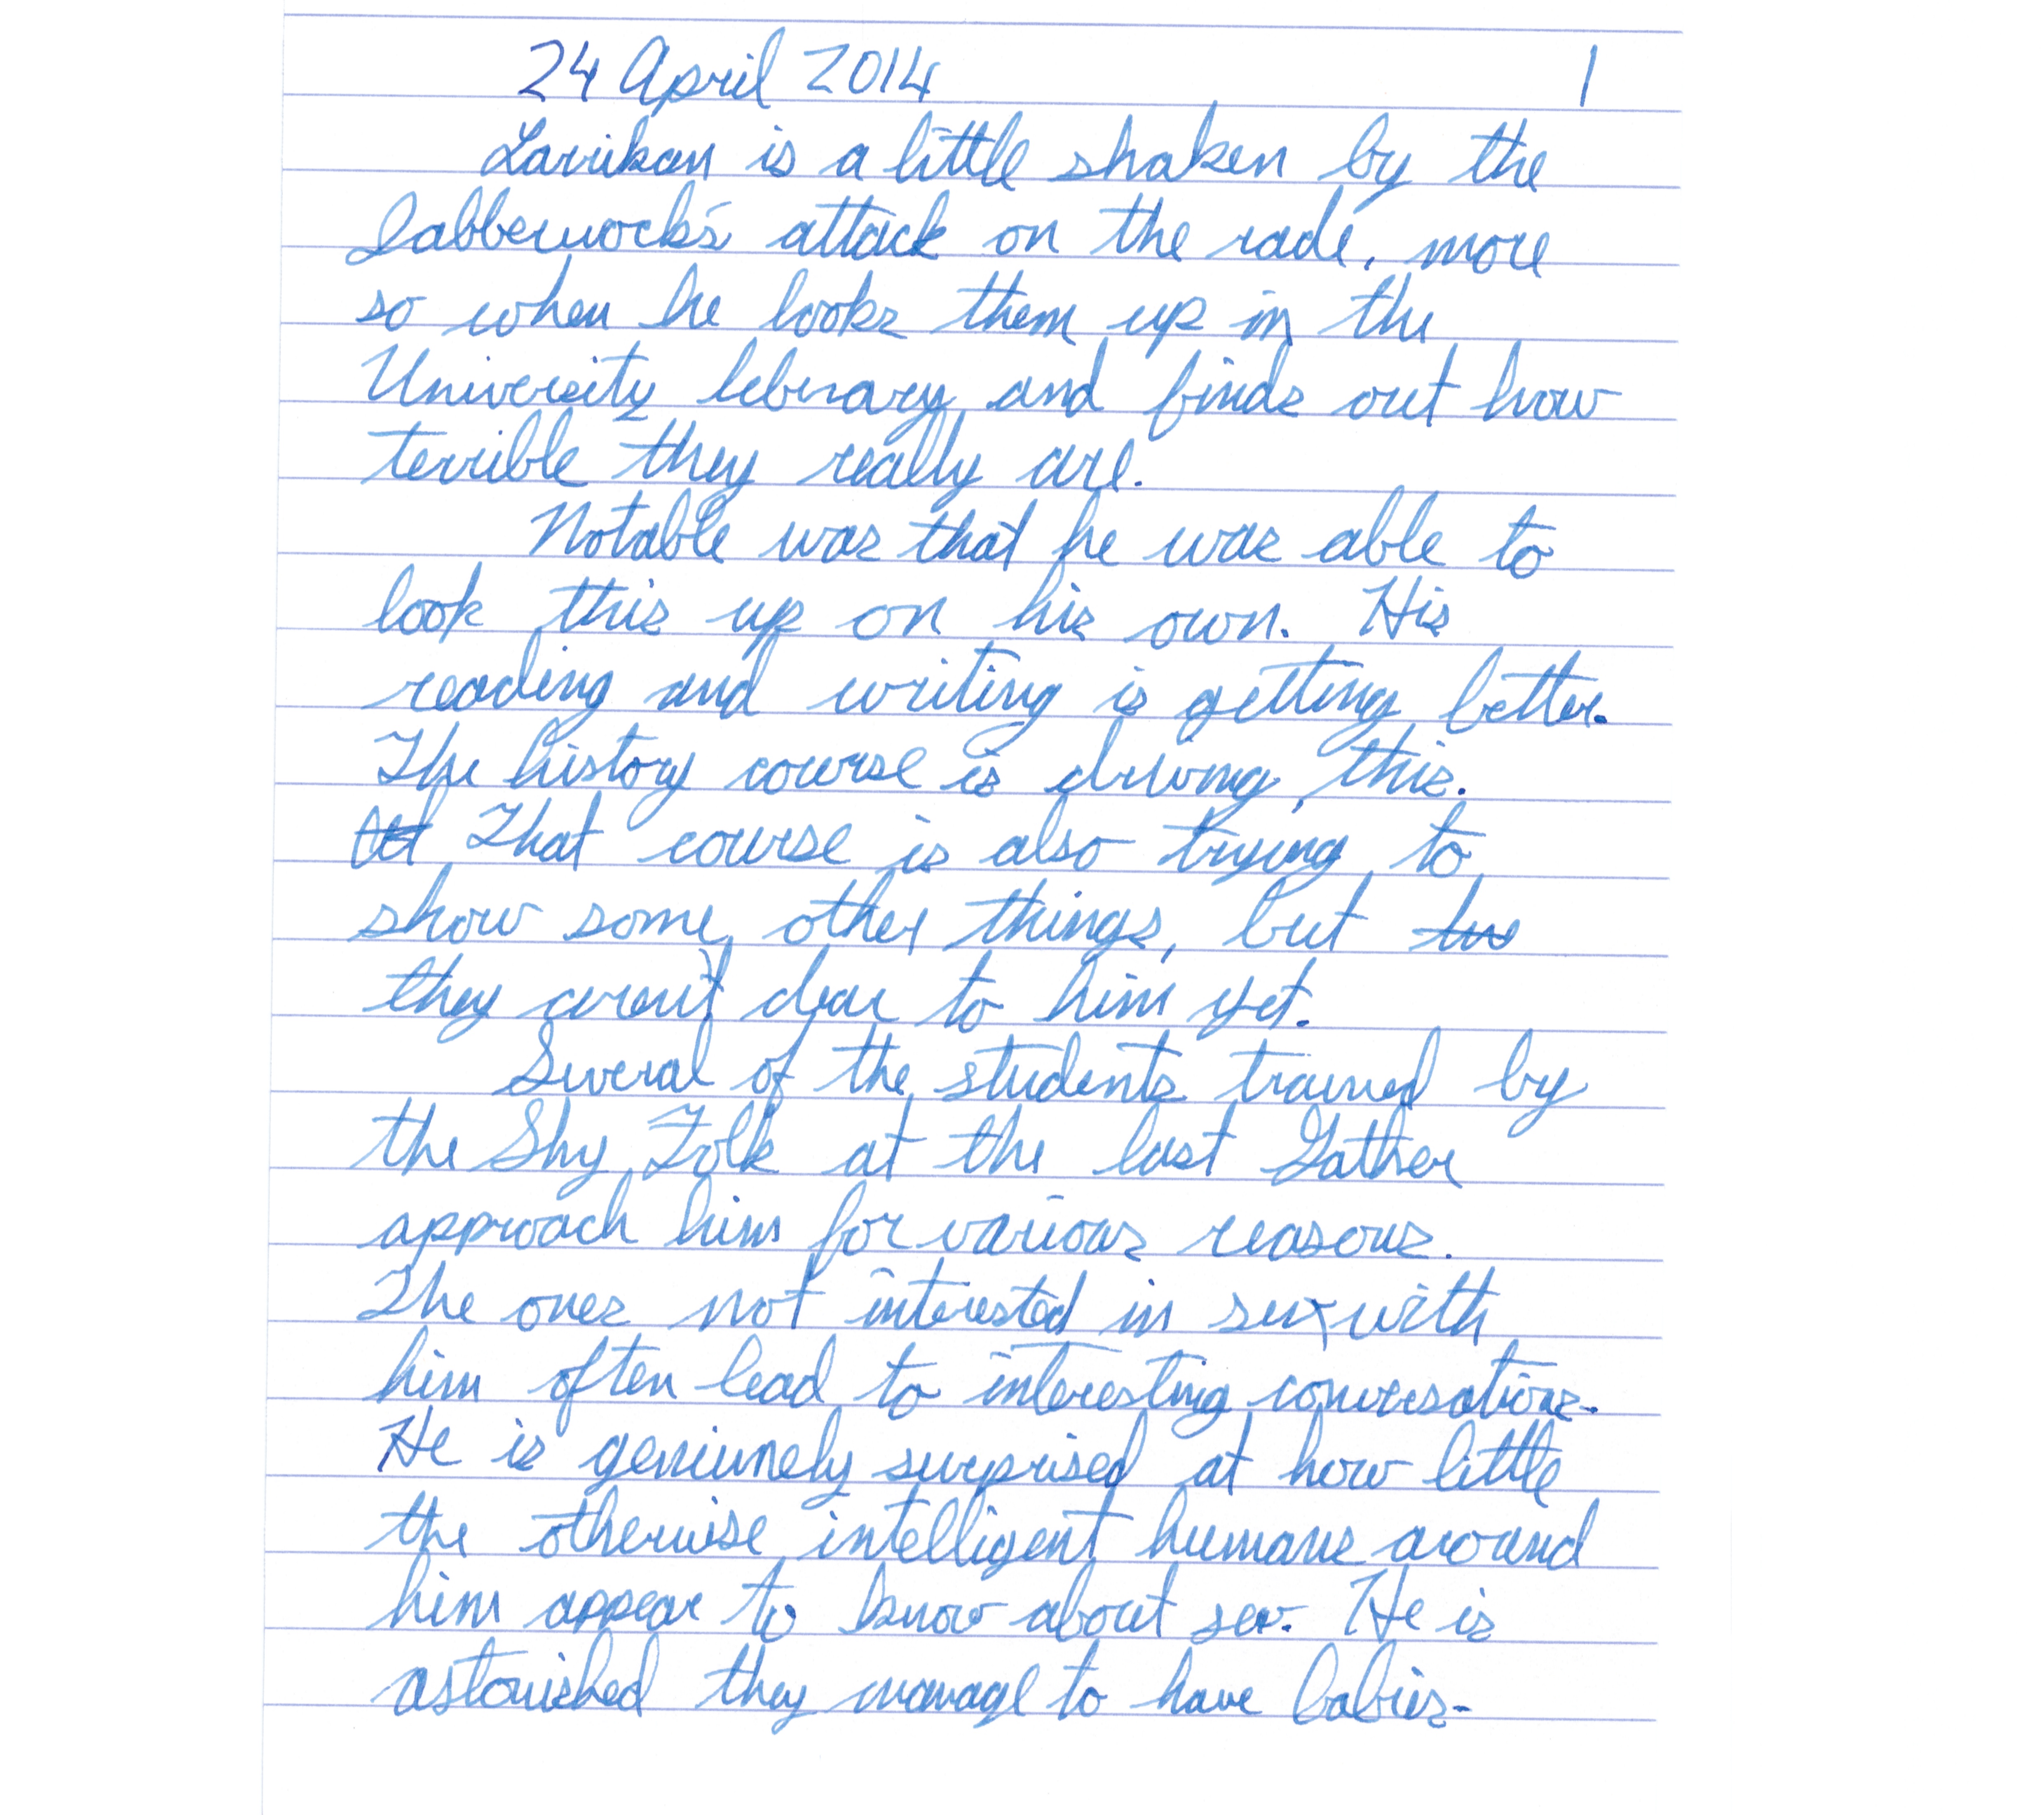 24 April 2014 1
Larikan is a little shaken by the
Jabberwock's attack on the rade, more
so when he looks them up in the
University library and finds out how
terrible they really are.
Notable was that he was able to
look this up on his own. His
reading and writing is getting better.
The history course is driving this.
That course is also trying to
show some other things, but
they aren't clear to him yet.
Several of the students trained by
the Shy Folk at the last Gather
approach him for various reasons.
The ones not interested in sex with
him often lead to interesting conversations.
He is geniunely surprised at how little
the otherwise intelligent humans around
him appear to know about sex. He is
astonished they manage to have babies.